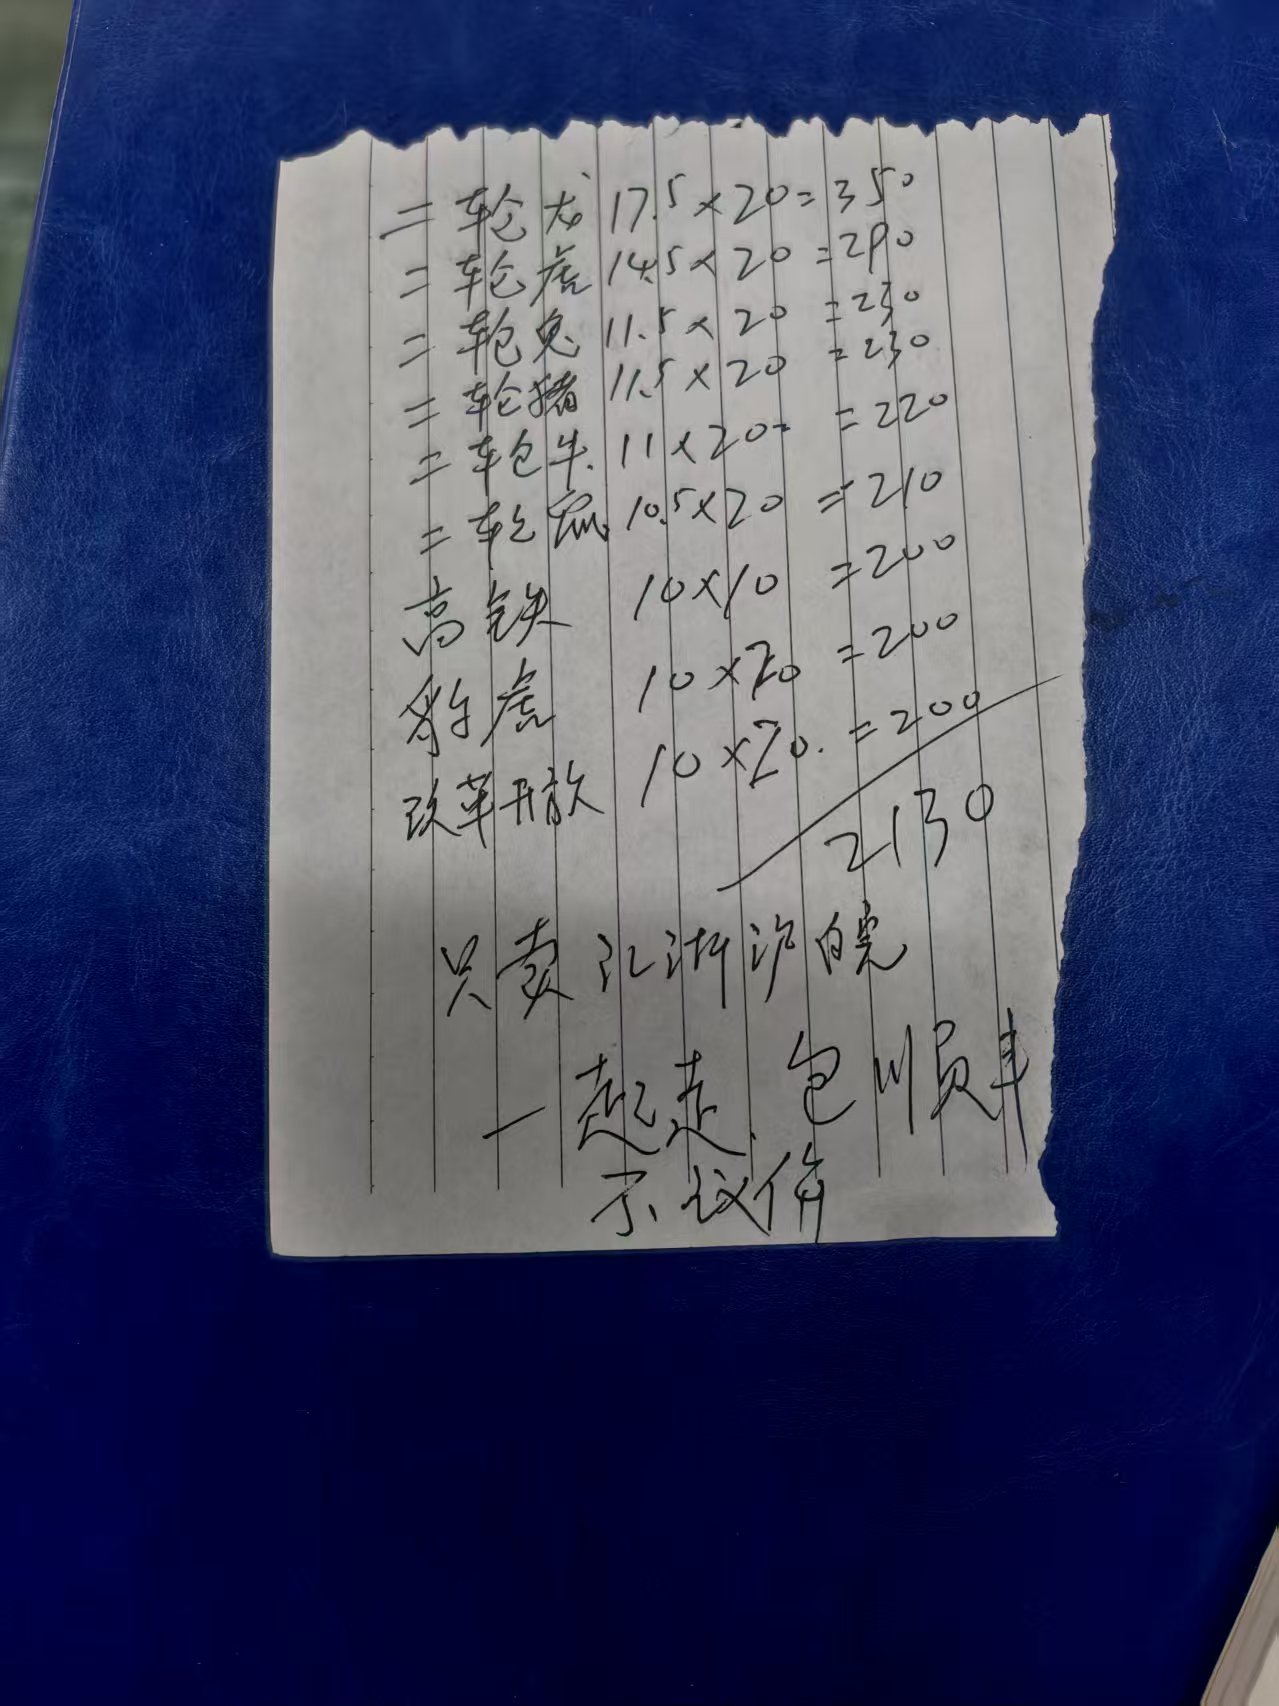 二轮龙 17.5×20=350
二轮虎 14.5×20=290
二轮兔 11.5×20=230
二轮猪 11.5×20=230
二轮牛. 11×20= =220
二轮鼠 10.5×20=210
高铁 10×10=200
航虎 10×20=200
改革开放 10×20.=200
2130
只卖江浙沪皖
一起走.包顺丰
不议价